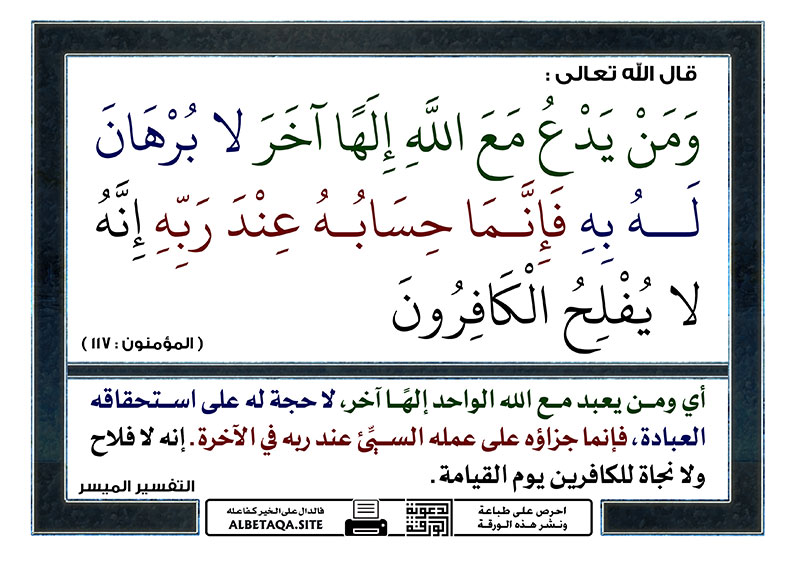 قال الله تعالى :
وَمَنْ يَدْعُ مَعَ اللَّهِ إِلَهًا آخَرَ لا بُرْهَانَ
لَهُ بِهِ فَإِنَّمَا حِسَابُهُ عِنْدَ رَبِّهِ إِنَّهُ
لا يُفْلِحُ الْكَافِرُونَ
( المؤمنون : ١١٧ )
أي ومن يعبد مع الله الواحد إلهًا آخر، لا حجة له على استحقاقه
العبادة، فإنما جزاؤه على عمله السيِّئ عند ربه في الآخرة. إنه لا فلاح
ولا نجاة للكافرين يوم القيامة.
التفسير الميسر
احرص على طباعة
ونشر هذه الورقة
الورقة
الدعوية
فالدال على الخير كفاعله
ALBETAQA.SITE